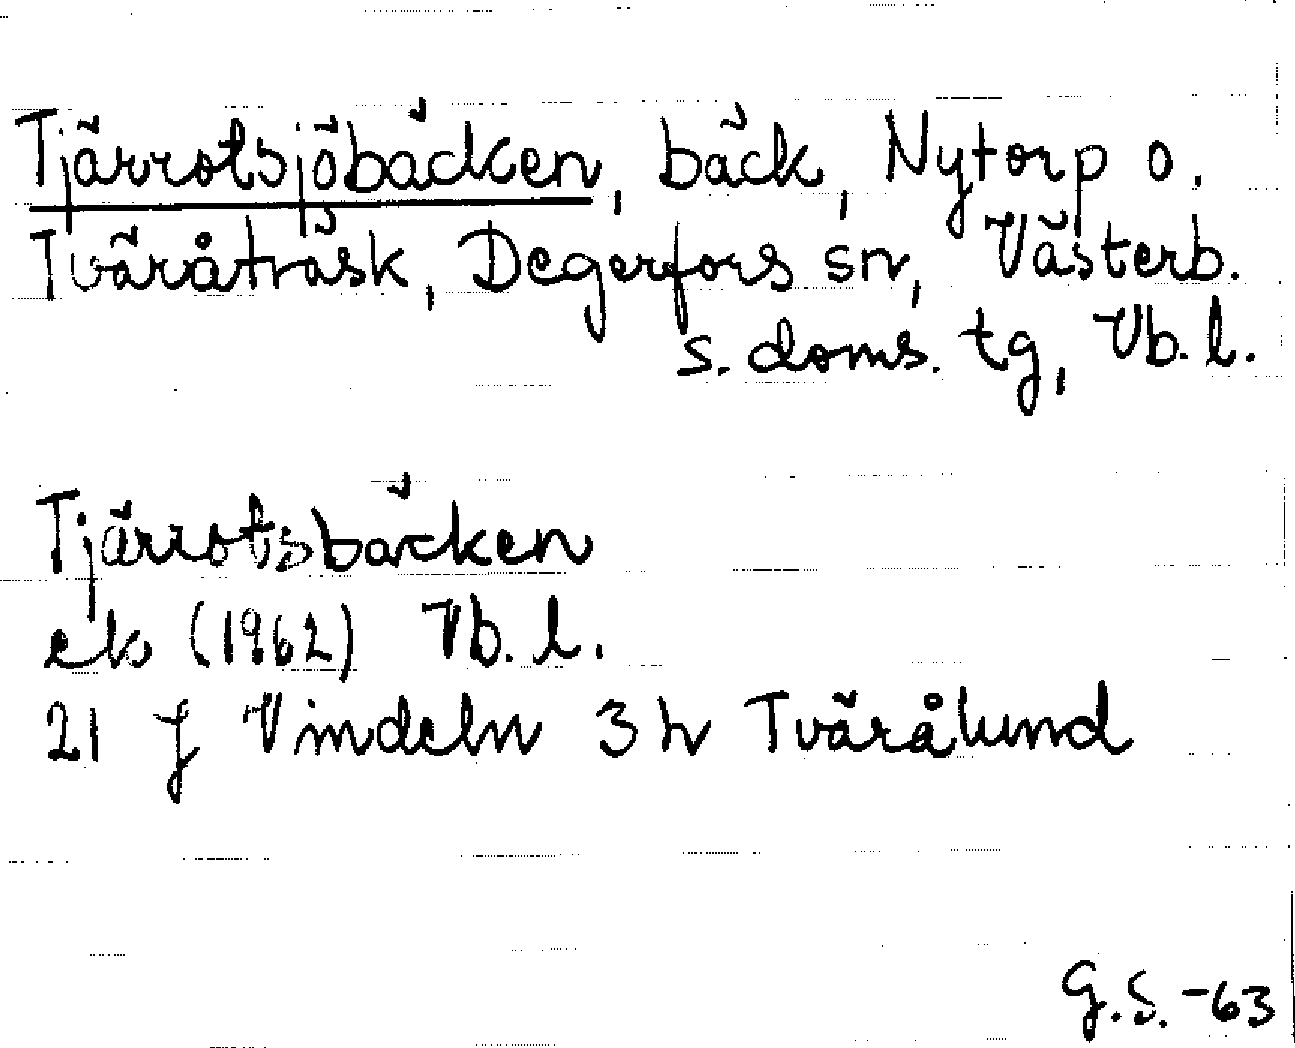 Tjärrotsjöbäcken, bäck, Nytorp o.
Tväråträsk, Degerfors sn, Västerb.
s. doms. tg, Vb. l.
Tjärrotsbäcken
ek (1962) Vb. l.
21 J Vindeln 3 h Tvärålund
G.S. -63